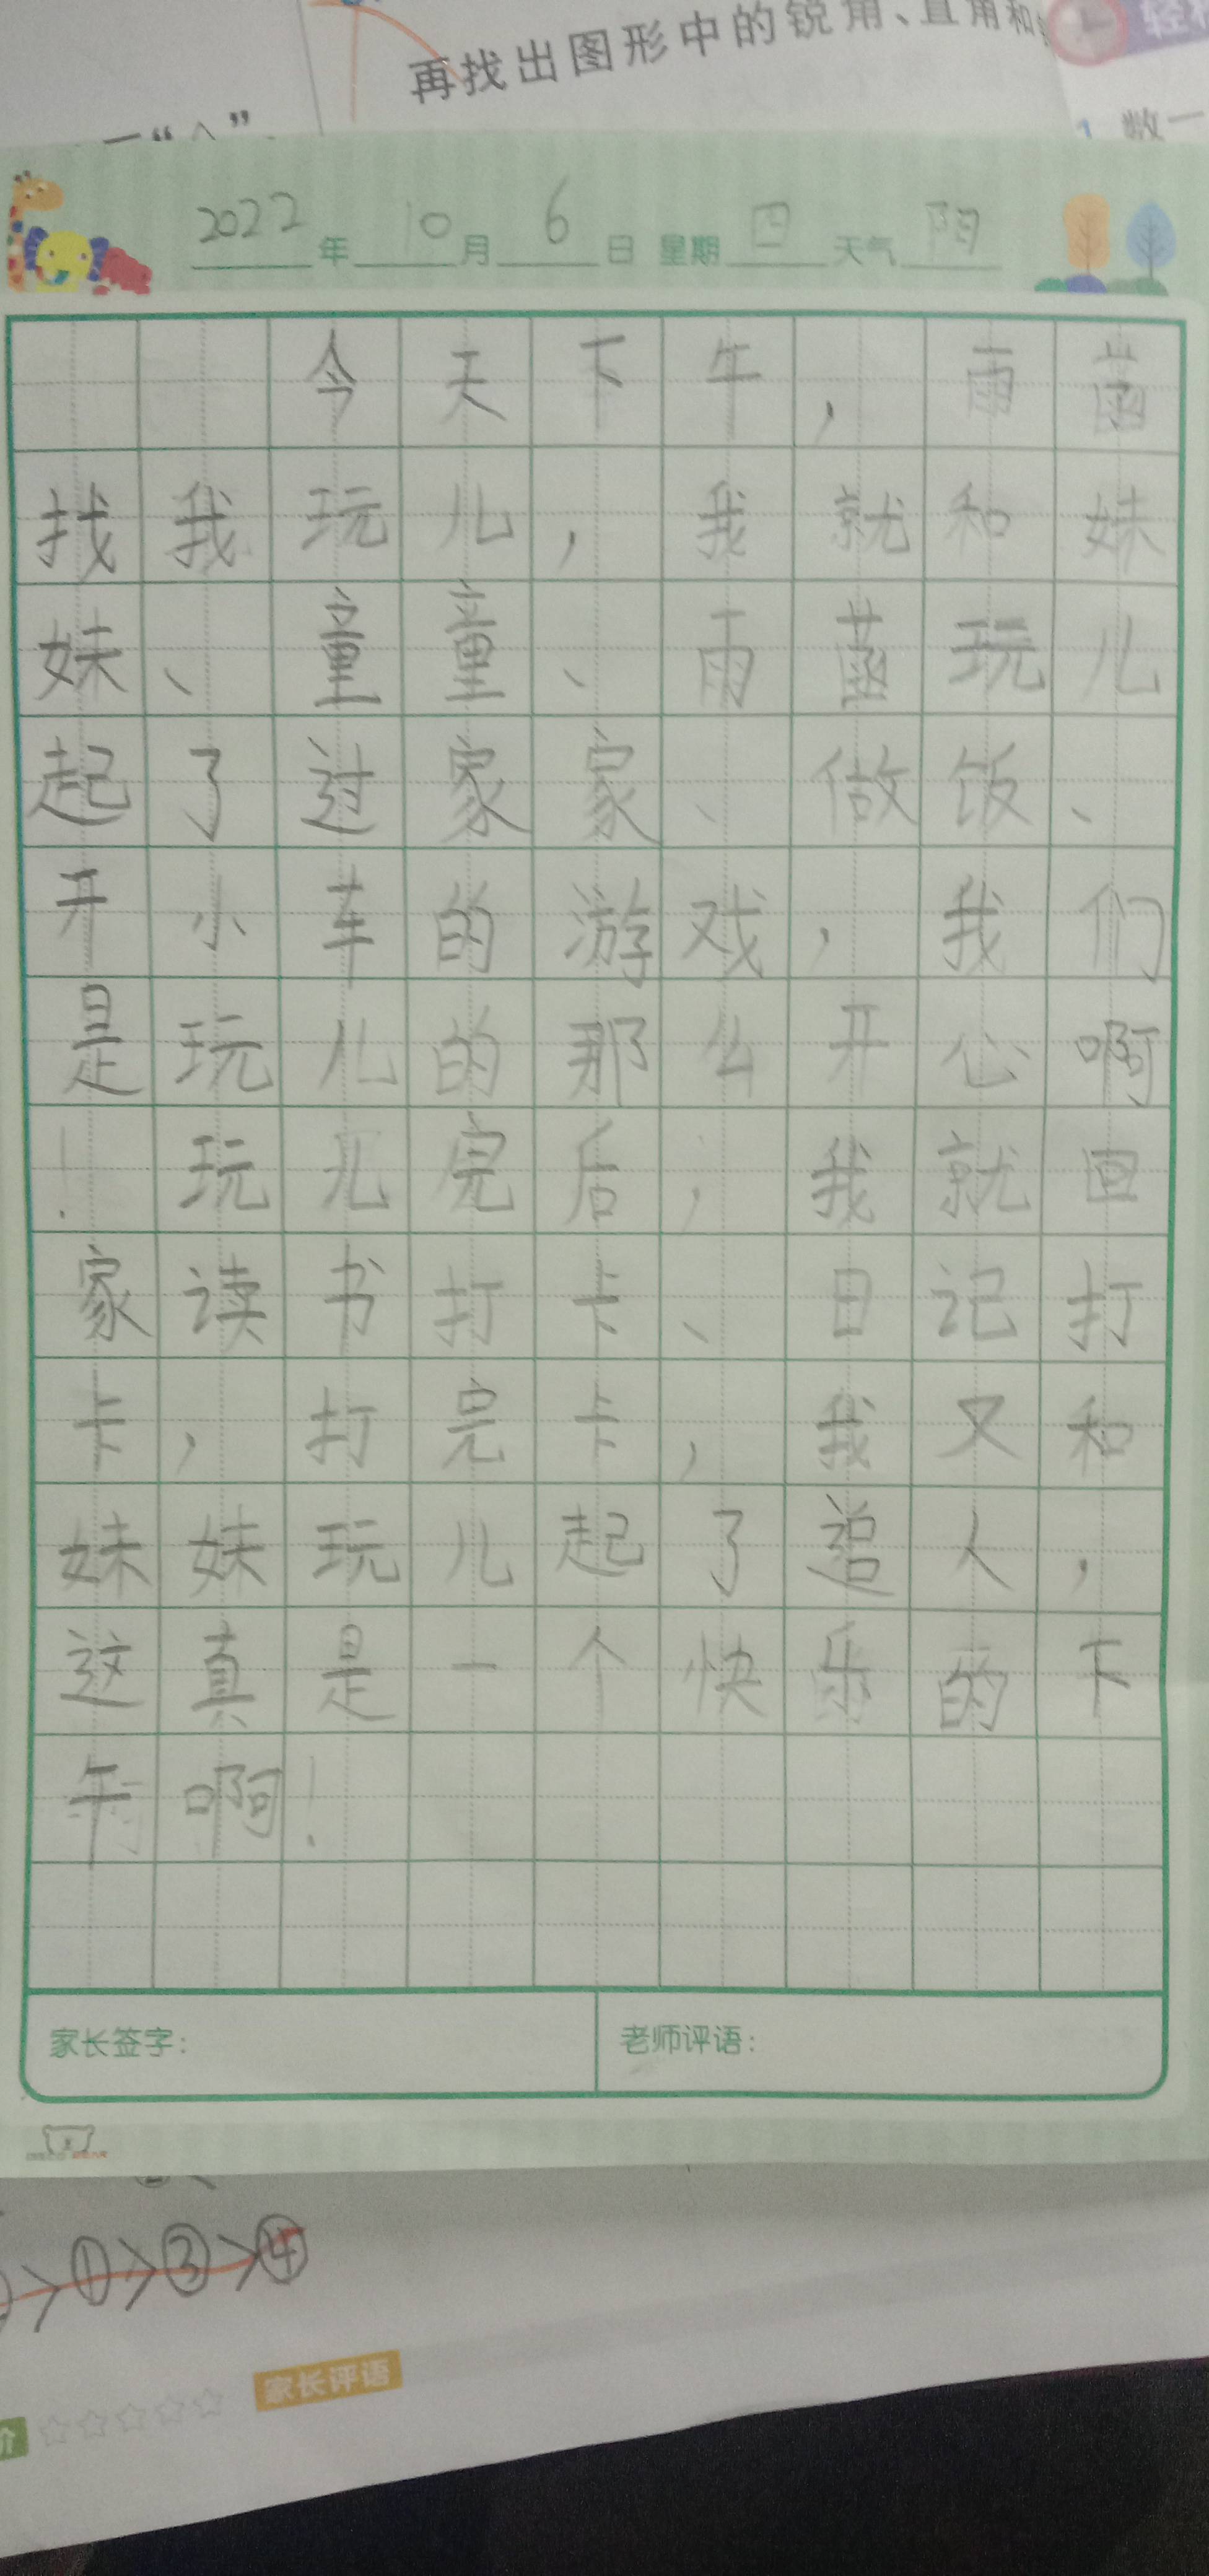 再找出图形中的锐角、直角和
轻松
一“△”.
1 数一
2022年10月6日 星期四 天气阴
今天下午，雨菡
找我玩儿，我就和妹
妹、童童、雨菡玩儿
起了过家家、做饭、
开小车的游戏，我们
是玩儿的那么开心啊
！玩儿完后，我就回
家读书打卡、日记打
卡，打完卡，我又和
妹妹玩儿起了追人，
这真是一个快乐的下
午啊！
家长签字：
老师评语：
>①>③>④
价
家长评语